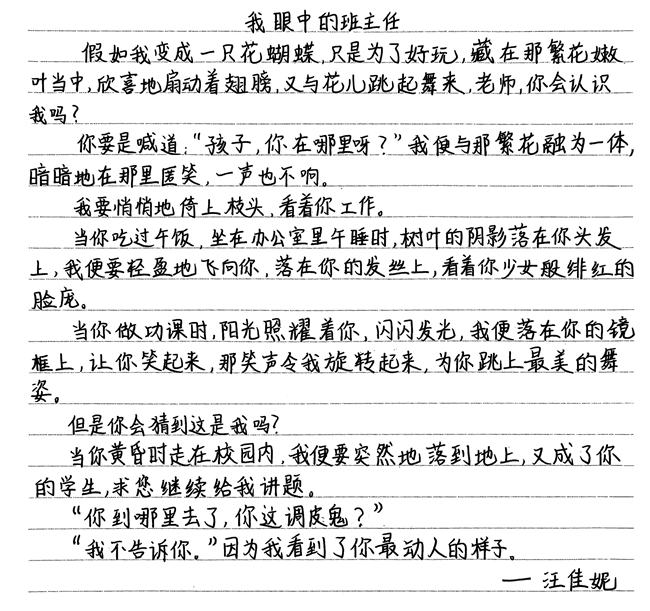 我眼中的班主任
假如我变成一只花蝴蝶,只是为了好玩,藏在那繁花嫩
叶当中,欣喜地扇动着翅膀,又与花儿跳起舞来,老师,你会认识
我吗?
你要是喊道:“孩子,你在哪里呀?”我便与那繁花融为一体,
暗暗地在那里匿笑,一声也不响。
我要悄悄地倚上枝头,看着你工作。
当你吃过午饭,坐在办公室里午睡时,树叶的阴影落在你头发
上,我便要轻盈地飞向你,落在你的发丝上,看着你少女般绯红的
脸庞。
当你做功课时,阳光照耀着你,闪闪发光,我便落在你的镜
框上,让你笑起来,那笑声令我旋转起来,为你跳上最美的舞
姿。
但是你会猜到这是我吗?
当你黄昏时走在校园内,我便要突然地落到地上,又成了你
的学生,求您继续给我讲题。
“你到哪里去了,你这调皮鬼?”
“我不告诉你。”因为我看到了你最动人的样子。
— 汪佳妮